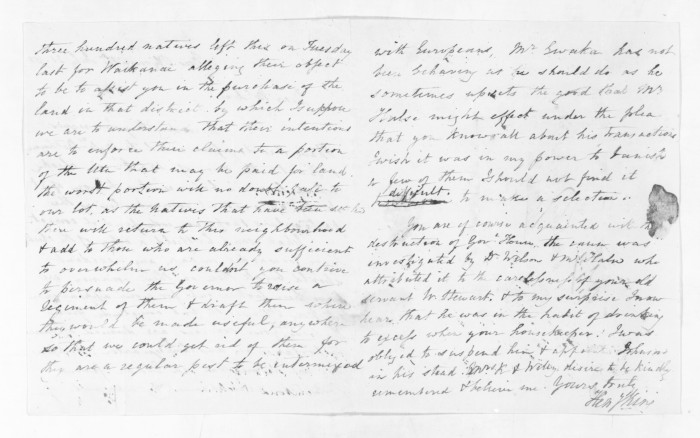 Three hundred natives left this on Tuesday
last for Waikanai alleging their object
to be to assist you in the purchase of the
land in that district. by which I suppose
we are to understand that their intentions
are to enforce their claims to a portion
of the Utu that may be paid for land.
the worst portion will no doubt fall to
our lot, as the Natives that have been
there will return to this neighbourhood
& add to those who are already sufficient
to overwhelm us, couldn't you contrive
to persuade the Governor to raise a
regiment of them & draft them where
they would be made useful, anywhere
so that we could get rid of them for
they are a regular pest to be intermixed
with Europeans, Mr Ewaka has not
been behaving as he should do as he
sometimes upsets the good that Mr
Halse might effect under the plea
that you know all about his transactions
I wish it was in my power to banish
a few of them I should not find it
difficult to make a selection.
You are of course acquainted with the
destruction of Gov. House, the cause was
investigated by Dr Wilson & Mr Halse who
attributed it to the carelessness of your old
servant W. Stewart, & to my surprise I now
hear, that he was in the habit of drinking
to excess when your housekeeper. I was
obliged to suspend him & appoint Johnson
in his stead. Mrs K & Willy desire to be kindly
remembered & believe me Yours truly
Hen King